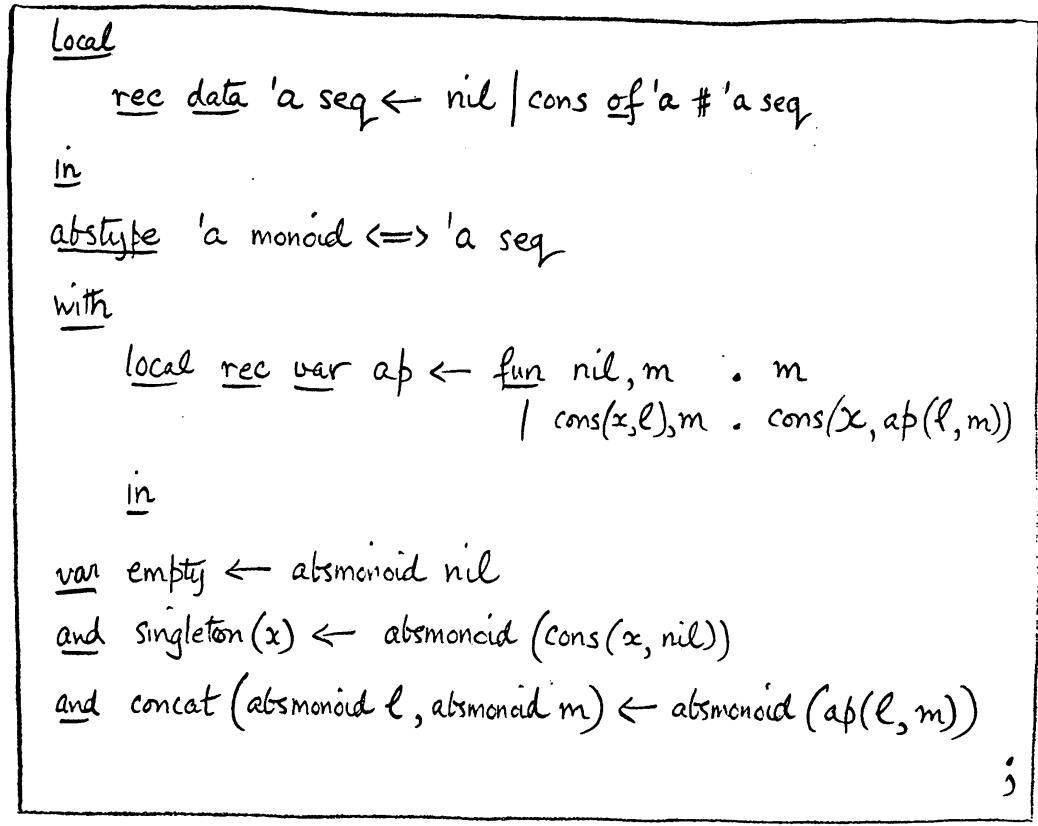 local
rec data 'a seq ← nil | cons of 'a # 'a seq
in
abstype 'a monoid <=> 'a seq
with
local rec var ap ← fun nil, m . m
| cons(x,l),m . cons(x, ap(l,m))
in
var empty ← absmonoid nil
and singleton(x) ← absmonoid (cons(x, nil))
and concat (absmonoid l, absmonoid m) ← absmonoid (ap(l, m))
;